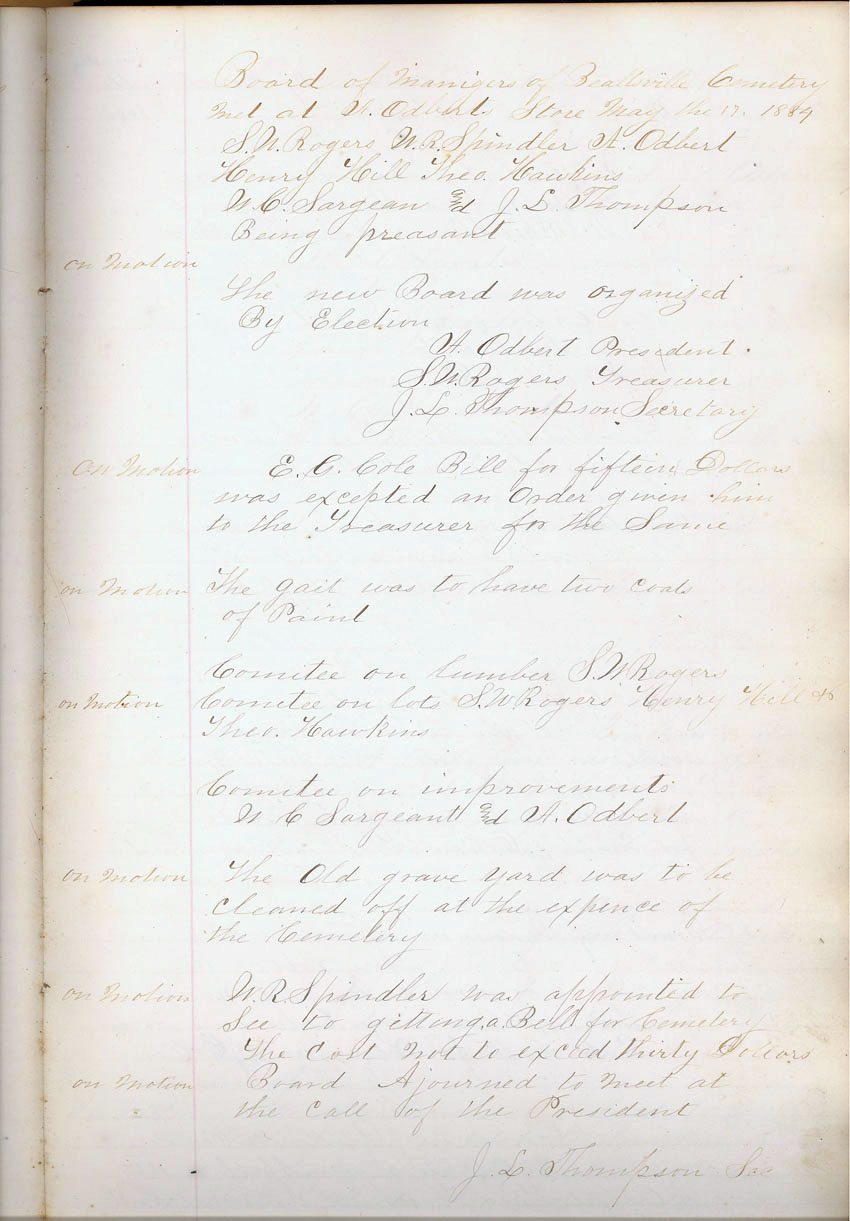 Board of Manigers of Beallsville Cemetery
Met at A. Odberts Store May the 17. 1884
S.W. Rogers W.R. Spindler A. Odbert
Henry Hill Theo. Hawkins
W.C. Sargean and J.L. Thompson
Being preasant
on Motion
The new Board was organized
By Election
A. Odbert President.
S.W. Rogers Treasurer
J.L. Thompson Secretary
on Motion E.G. Cole Bill for fifteen Dollars
was excepted an Order given him
to the Treasurer for the Same
on Motion The gait was to have two coats
of Paint
Comitee on lumber S.W Rogers
on Motion Comitee on lots S.W. Rogers Henry Hill &
Theo. Hawkins
Comitee on improvements
W C Sargeant and A. Odbert
on Motion The Old grave yard was to be
cleaned off at the expence of
the Cemetery
on Motion W.R. Spindler was appointed to
See to gitting a Bell for Cemetery
The Cost Not to exceed thirty Dollars
on Motion Board Ajourned to meet at
the Call of the President
J.L. Thompson Sec